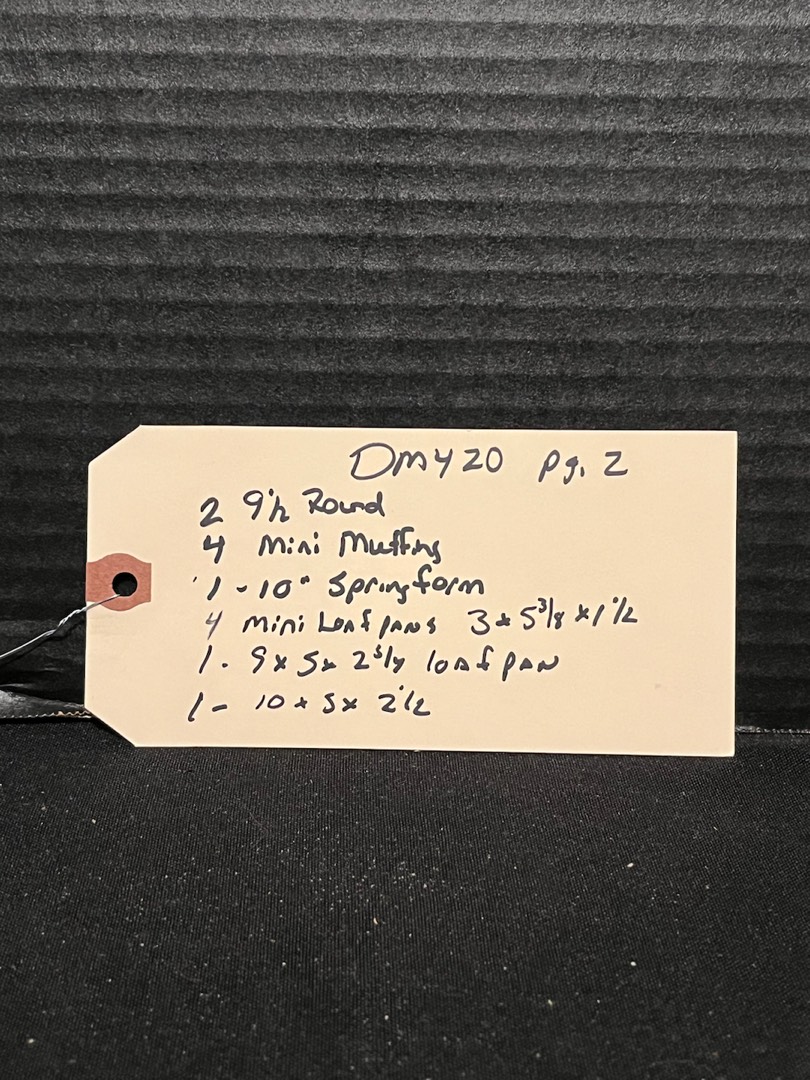 Dm420 pg. 2
2 9 1/2 Round
4 mini Muffins
1 - 10" Springform
4 mini Loaf pans 3 x 5 3/8 x 1 1/2
1 - 9 x 5 x 2 3/4 loaf pan
1 - 10 x 5 x 2 1/2